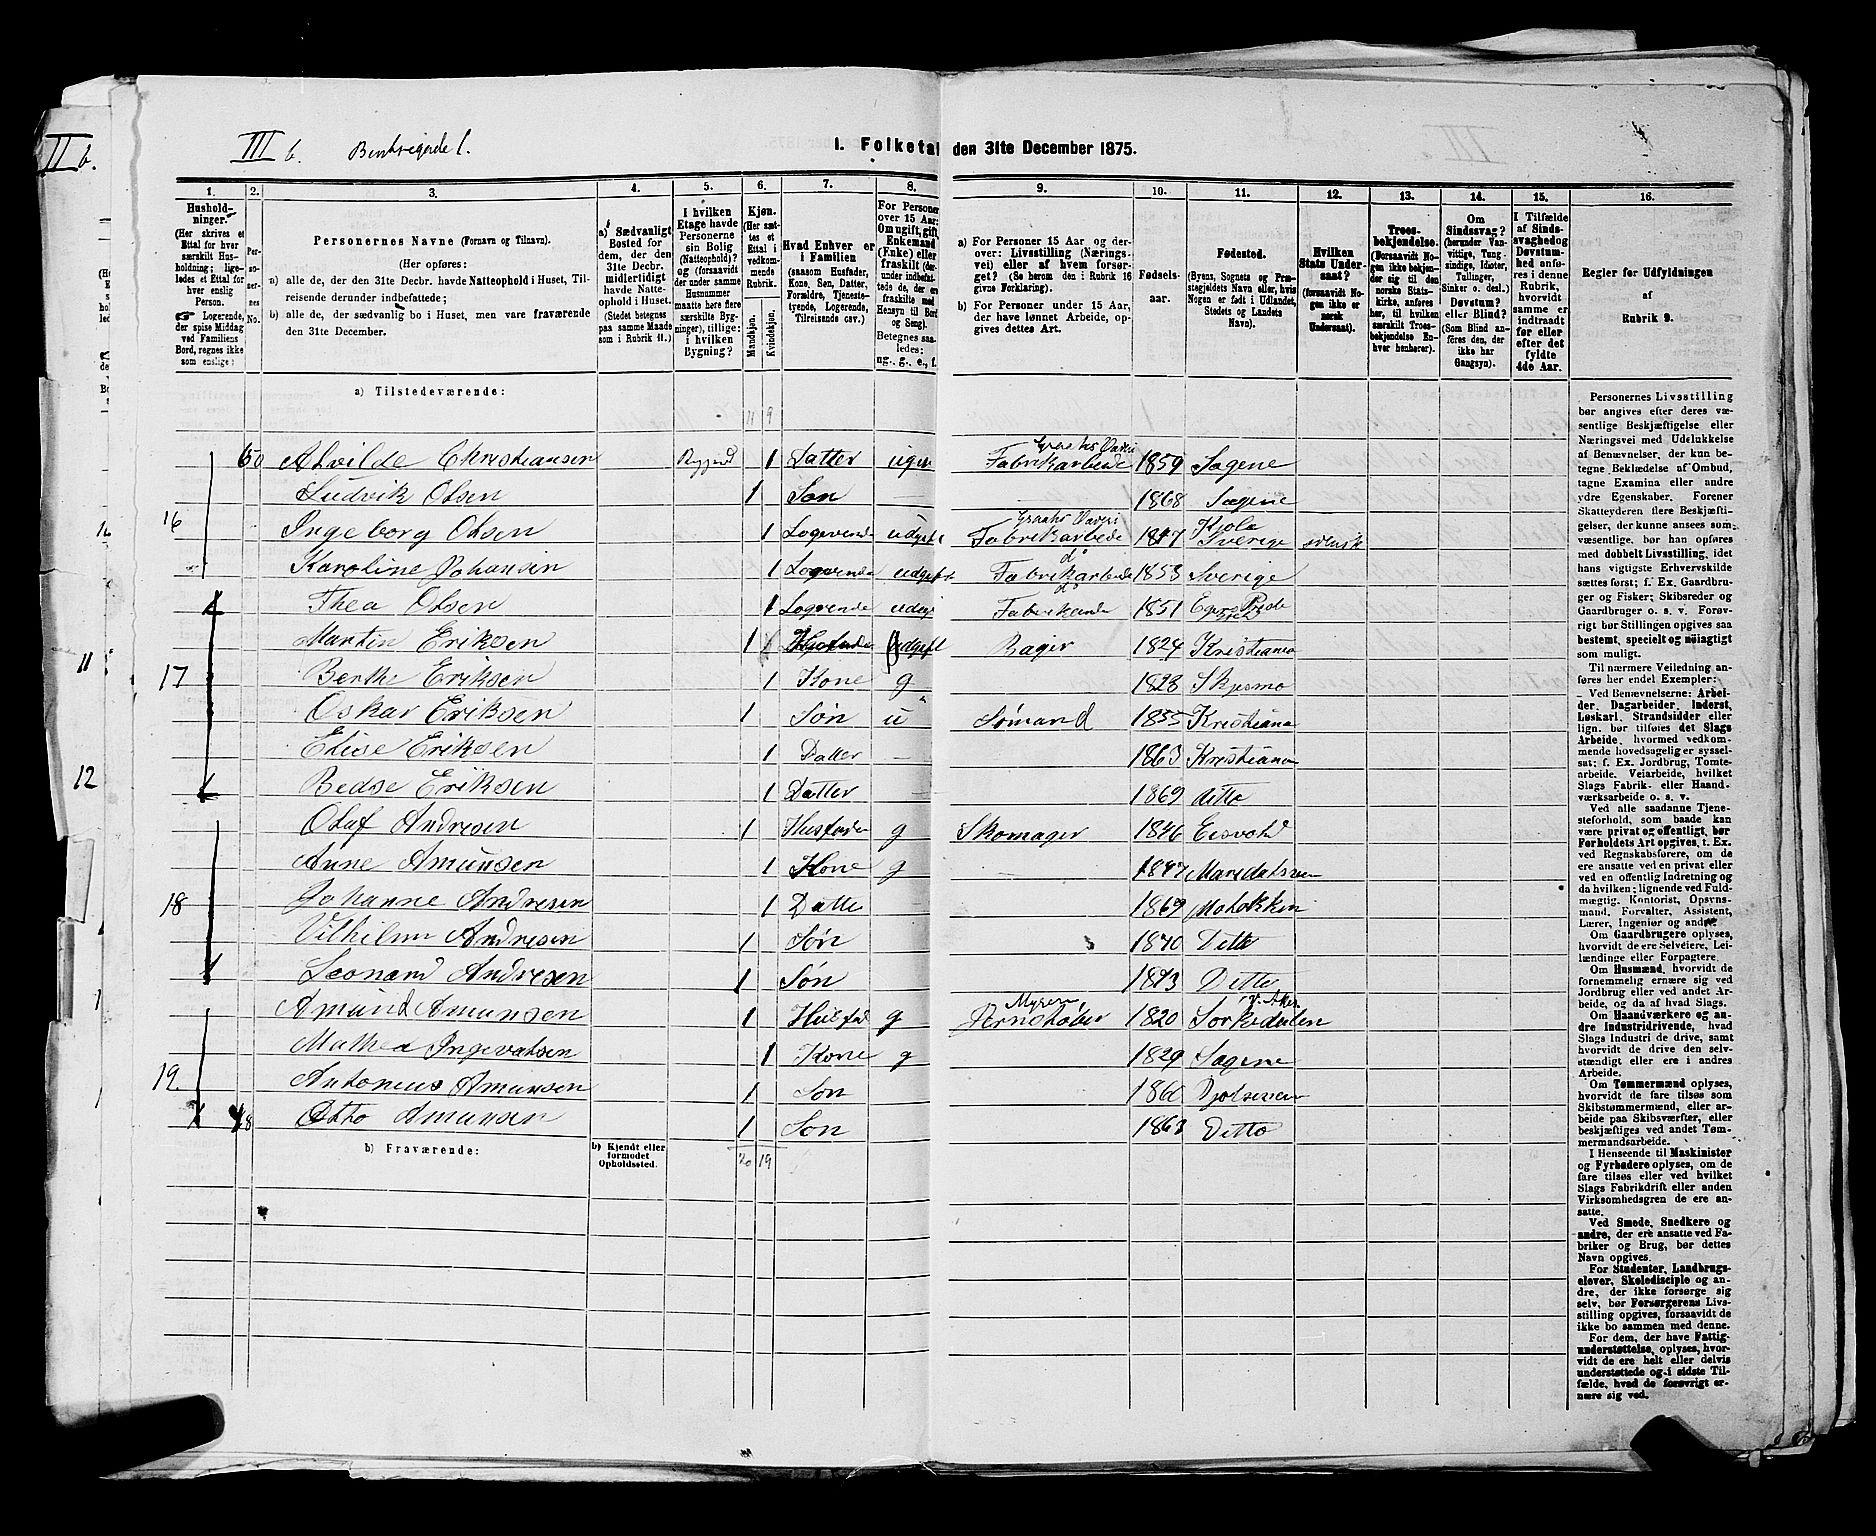 II b.
III b.
1. Folketal den 31te December 1875.
1. 2. 3. 4. 5. 6. 7. 8. 9. 10. 11. 12. 13. 14. 15. 16.
Husholdninger.
(Her skrives et Ettal for hver særskilt Husholdning; ligeledes et Ettal for hver enslig Person.
☞ Logerende, der spise Middag ved Familiens Bord, regnes ikke som enslige.)
Personernes No.
Personernes Navne (Fornavn og Tilnavn).
(Her opføres:
a) alle de, der den 31te Decbr. havde Natteophold i Huset, Tilreisende derunder indbefattede;
b) alle de, der sædvanlig bo i Huset, men vare fraværende den 31te December.
a) Sædvanligt Bosted for dem, der den 31te Decbr. midlertidigt havde Natteophold i Huset.
(Stedet betegnes paa samme Maade som i Rubrik 11.)
I hvilken Etage havde Personerne sin Bolig (Natteophold)? og (forsaavidt der under samme Husnummer maatte høre flere særskilte Bygninger), tillige: i hvilken Bygning?
Kjøn.
(Her sættes et Ettal i vedkommende Rubrik.
Mandkjøn.
Kvindekjøn.
Hvad Enhver er i Familien
(saasom Husfader, Kone, Søn, Datter, Forældre, Tjenestetyende, Logerende, Tilreisende osv.)
For Personer over 15 Aar: Om ugift, gift, Enkemand (Enke) eller fraskilt (derunder indbefattede de, der ere fraskilte med Hensyn til Bord og Seng).
Betegnes saaledes: ug., g., e., f.
a) For Personer 15 Aar og derover: Livsstilling (Næringsvei) eller af hvem forsørget (Se herom den i Rubrik 16 givne Forklaring).
b) For Personer under 15 Aar, der have lønnet Arbeide, opgives dettes Art.
Fødselsaar.
Fødested.
(Byens, Sognets og Præstegjeldets Navn eller, hvis Nogen er født i Udlandet, Stedets og Landets Navn).
Hvilken Stats Undersaat?
(forsaavidt Nogen ikke er norsk Undersaat?
Troesbekjendelse.
(Forsaavidt Nogen ikke bekjender sig til den norske Statskirke, anføres her, til hvilken særskilt Troesbekjendelse Enhver henhører).
Om Sindssvag?
(herunder Vanvittige, Tungsindige, Idioter, Tullinger, Sinker o. desl.)
Døvstum? eller Blind?
(Som Blind anføres den, der ikke har Gangsyn).
I Tilfælde af Sindssvaghed og Døvstumhed anføres i denne Rubrik, hvorvidt samme er indtraadt før eller efter det fyldte 4de Aar.
Regler for Udfyldningen af Rubrik 9.
a) Tilstedeværende:
11 9
Alvilde Christiansen 1 Datter Graahs Væveri Fabrikarbeide 1859 Sagene
Ludvik Olsen 1 Søn — 1868 Sagene
16 Ingeborg Olsen 1 Logerende Graahs Væveri Fabrikarbeide Sverige svensk
Karoline Johansen 1 Logerende Fabrikarbeide 1853 Sverige
Thea Olsen 1 Logerende 1851
Martin Eriksen 1 Husfader Bager 1824 Kristiania
17 Berthe Eriksen 1 Kone g 1823 Skjesmo
Oskar Eriksen 1 Søn u Sømand 1855 Kristiana
Elise Eriksen 1 Datter — 1863 Kristiana
Bedse Eriksen 1 Datter 1869 ditto
Oluf Andresen 1 Husfader g Skomager 1846 Eisvold
Anne Amunsen 1 Kone g 1847
18 Johanne Andresen 1 Datte 1869
Vilhelm Andresen 1 Søn 1870 Ditto
Leonard Andresen 1 Søn 1873 Ditto
Amund Amunsen 1 Husfad g Myren 1820 Sørkedalen V. Aker
Mathea Ingevalsen 1 Kone g 1829 Sagene
19. Antonius Amunsen 1 Søn
Otho Amunsen 1 Søn 1863 Ditto
11
12
b) Fraværende:
b) Kjendt eller formodet Opholdssted.
20 19
Personernes Livsstilling bør angives efter deres væsentlige Beskjæftigelse eller Næringsvei med Udelukkelse af Benævnelser, der kun betegne Beklædelse af Ombud, tagne Examina eller andre ydre Egenskaber. Forener Skatteyderen flere Beskjæftigelser, der kunne ansees som væsentlige, bør han opføres med dobbelt Livsstilling, idet hans vigtigste Erhvervskilde sættes først; f. Ex. Gaardbruger og Fisker; Skibsreder og Gaardbruger o. s. v. Forøvrigt bør Stillingen opgives saa bestemt, specielt og nøiagtigt som muligt.
Til nærmere Veiledning anføres her endel Exempler:
Ved Benævnelserne: Arbeider, Dagarbeider, Inderst, Løskarl, Strandsidder eller lign. bør tilføies det Slags Arbeide, hvormed vedkommende hovedsagelig er sysselsat; f. Ex. Jordbrug, Tomtearbeide, Veiarbeide, hvilket Slags Fabrik- eller Haandværksarbeide o. s. v.
Ved alle saadanne Tjenesteforhold, som baade kan være privat og offentligt, bør Forholdets Art opgives, f. Ex. ved Regnskabsførere, om de ere ansatte ved en privat eller ved en offentlig Indretning og da hvilken; lignende ved Fuldmægtig, Kontorist, Opsynsmand, Forvalter, Assistent, Lærer, Ingeniør og andre.
Om Gaardbrugere oplyses, hvorvidt de ere Selveiere, Leilændinge eller Forpagtere.
Om Husmænd, hvorvidt de fornemmelig ernære sig ved Jordbrug eller ved andet Arbeide, og da af hvad Slags.
Om Haandværkere og andre Industridrivende, hvad Slags Industri de drive, samt hvorvidt de drive den selvstændigt eller ere i andres Arbeide.
Om Tømmermænd oplyses, hvorvidt de fare tilsøs som Skibstømmermænd, eller arbeide paa Skibsværfter, eller beskjæftiges ved andet Tømmermandsarbeide.
I Henseende til Maskinister og Fyrbødere oplyses, om de fare tilsøs eller ved hvilket Slags Fabrikdrift eller anden Virksomhedsgren de ere ansatte.
Ved Smede, Snedkere og andre, der ere ansatte ved Fabriker og Brug, bør dettes Navn opgives.
For Studenter, Landbrugselever, Skoledisciple og andre, der ikke forsørge sig selv, bør Forsørgerens Livsstilling opgives, forsaavidt de ikke bo sammen med denne.
For dem, der have Fattigunderstøttelse, oplyses, hvorvidt de ere helt eller delvis understøttede og i sidste Tilfælde, hvad de forøvrigt ernære sig ved.